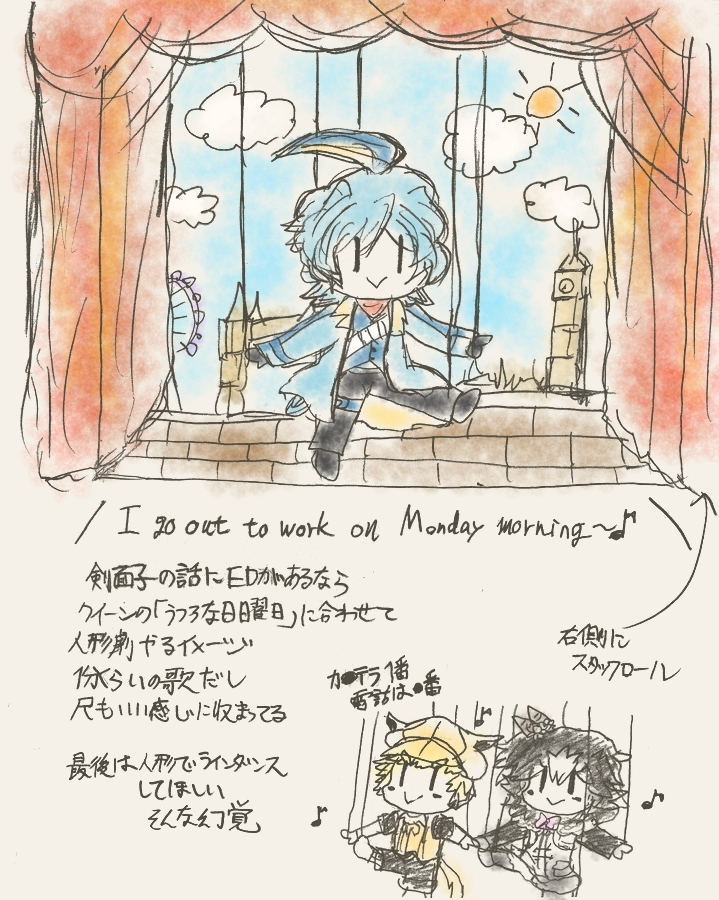 I go out to work on Monday morning～♪
剣面子の話にEDがあるなら
クイーンの「うつろな日曜日」に合わせて
人形劇やるイメージ
1分くらいの歌だし
尺もいい感じに収まってる
右側に
スタッフロール
カ●テラ1番
電話は●番
最後は人形でラインダンス
してほしい
そんな幻覚